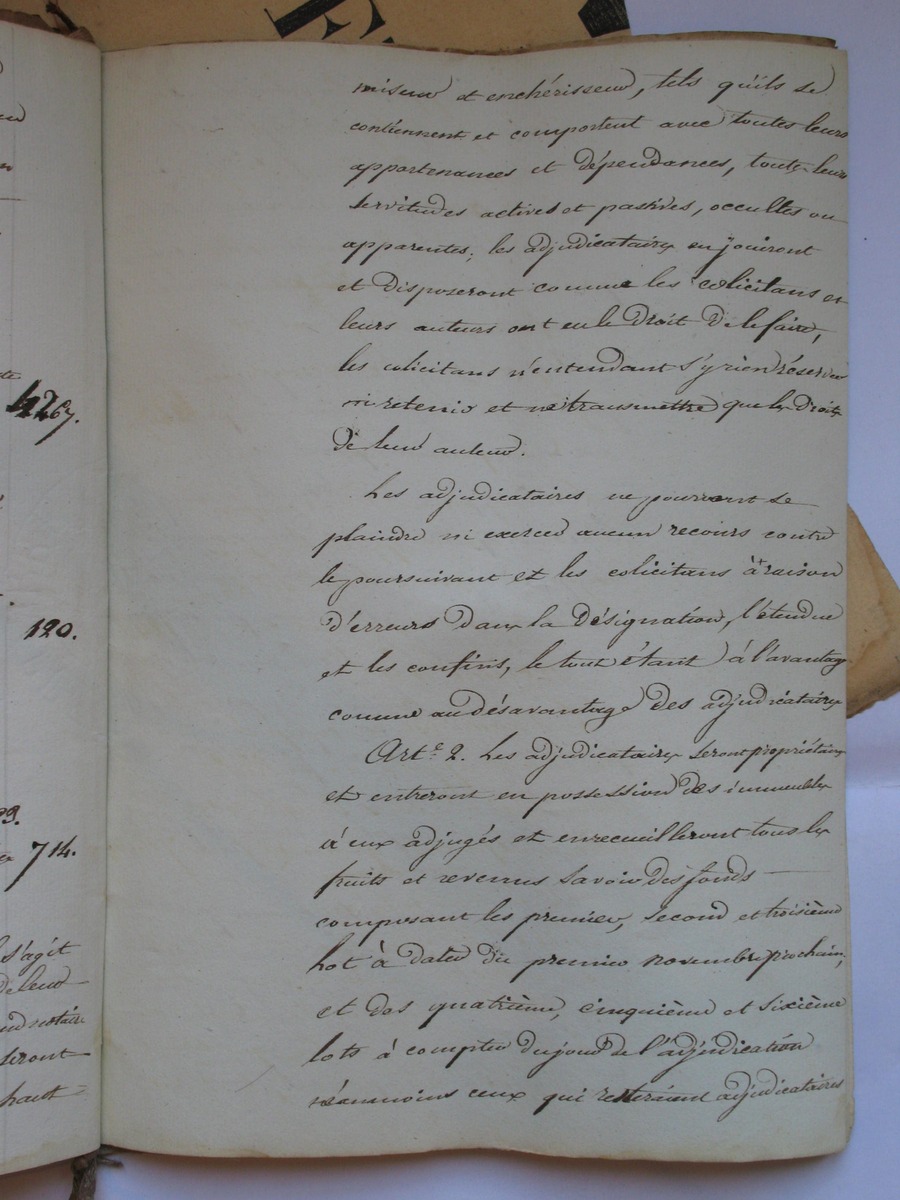 F
miseur et enchérisseur, tels qu'ils se
contiennent et comportent avec toutes leurs
appartenances et dépendances, toutes leurs
servitudes actives et passives, occultes ou
apparentes; les adjudicataires en jouiront
et disposeront comme les colicitans et
leurs auteurs ont eu le droit de le faire,
les colicitans n'entendant s'y rien réserver
ni retenir et ne transmettre que les droits
de leur auteur.
Les adjudicataires ne pourront se
plaindre ni exercer aucun recours contre
le poursuivant et les colicitans à raison
d'erreurs dans la désignation, l'étendue
et les confins, le tout étant à l'avantage
comme au désavantage des adjudicataires
Art.e 2. Les adjudicataires seront propriétaires
et entreront en possession des immeubles
à eux adjugés et en recueilleront tous les
fruits et revenus savoir des fonds
composant les premier, second et troisième
Lot à dater du premier novembre prochain,
et des quatrième, cinquième et sixième
lots à compter du jour de l'adjudication
néanmoins ceux qui resteraient adjudicataires
426 7.
120.
99.
714.
s'agit
de leur
notaire
seront
haut